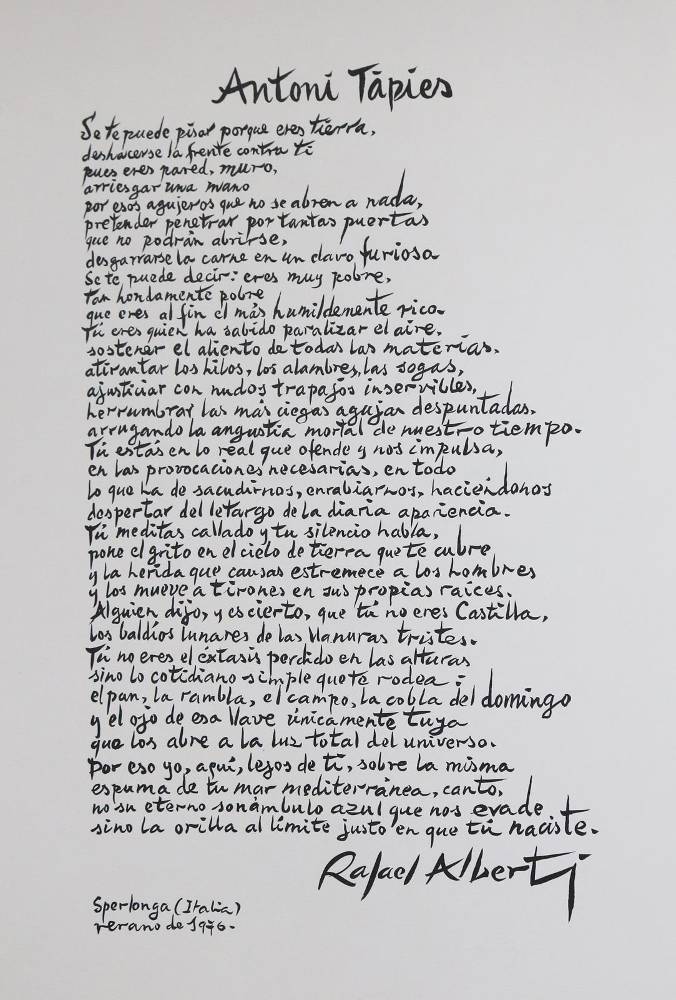 Antoni Tàpies
Se te puede pisar porque eres tierra,
deshacerse la frente contra ti
pues eres pared, muro,
arriesgar una mano
por esos agujeros que no se abren a nada,
pretender penetrar por tantas puertas
que no podrán abrirse,
desgarrarse la carne en un clavo furiosa
Se te puede decir: eres muy pobre,
tan hondamente pobre
que eres al fin el más humildemente rico.
Tú eres quien ha sabido paralizar el aire,
sostener el aliento de todas las materias,
atirantar los hilos, los alambres, las sogas,
ajusticiar con nudos trapajos inservibles,
herrumbrar las más ciegas agujas despuntadas,
arrugando la angustia mortal de nuestro tiempo.
Tú estás en lo real que ofende y nos impulsa,
en las provocaciones necesarias, en todo
lo que ha de sacudirnos, enrabiarnos, haciéndonos
despertar del letargo de la diaria apariencia.
Tú meditas callado y tu silencio habla,
pone el grito en el cielo de tierra que te cubre
y la herida que causas estremece a los hombres
y los mueve a tirones en sus propias raíces.
Alguien dijo, y es cierto, que tú no eres Castilla,
los baldíos lunares de las llanuras tristes.
Tú no eres el éxtasis perdido en las alturas
sino lo cotidiano simple que te rodea:
el pan, la rambla, el campo, la cobla del domingo
y el ojo de esa llave únicamente tuya
que los abre a la luz total del universo.
Por eso yo, aquí, lejos de ti, sobre la misma
espuma de tu mar mediterránea, canto,
no su eterno sonámbulo azul que nos evade
sino la orilla al límite justo en que tú naciste.
Rafael Alberti
Sperlonga (Italia)
verano de 1976.